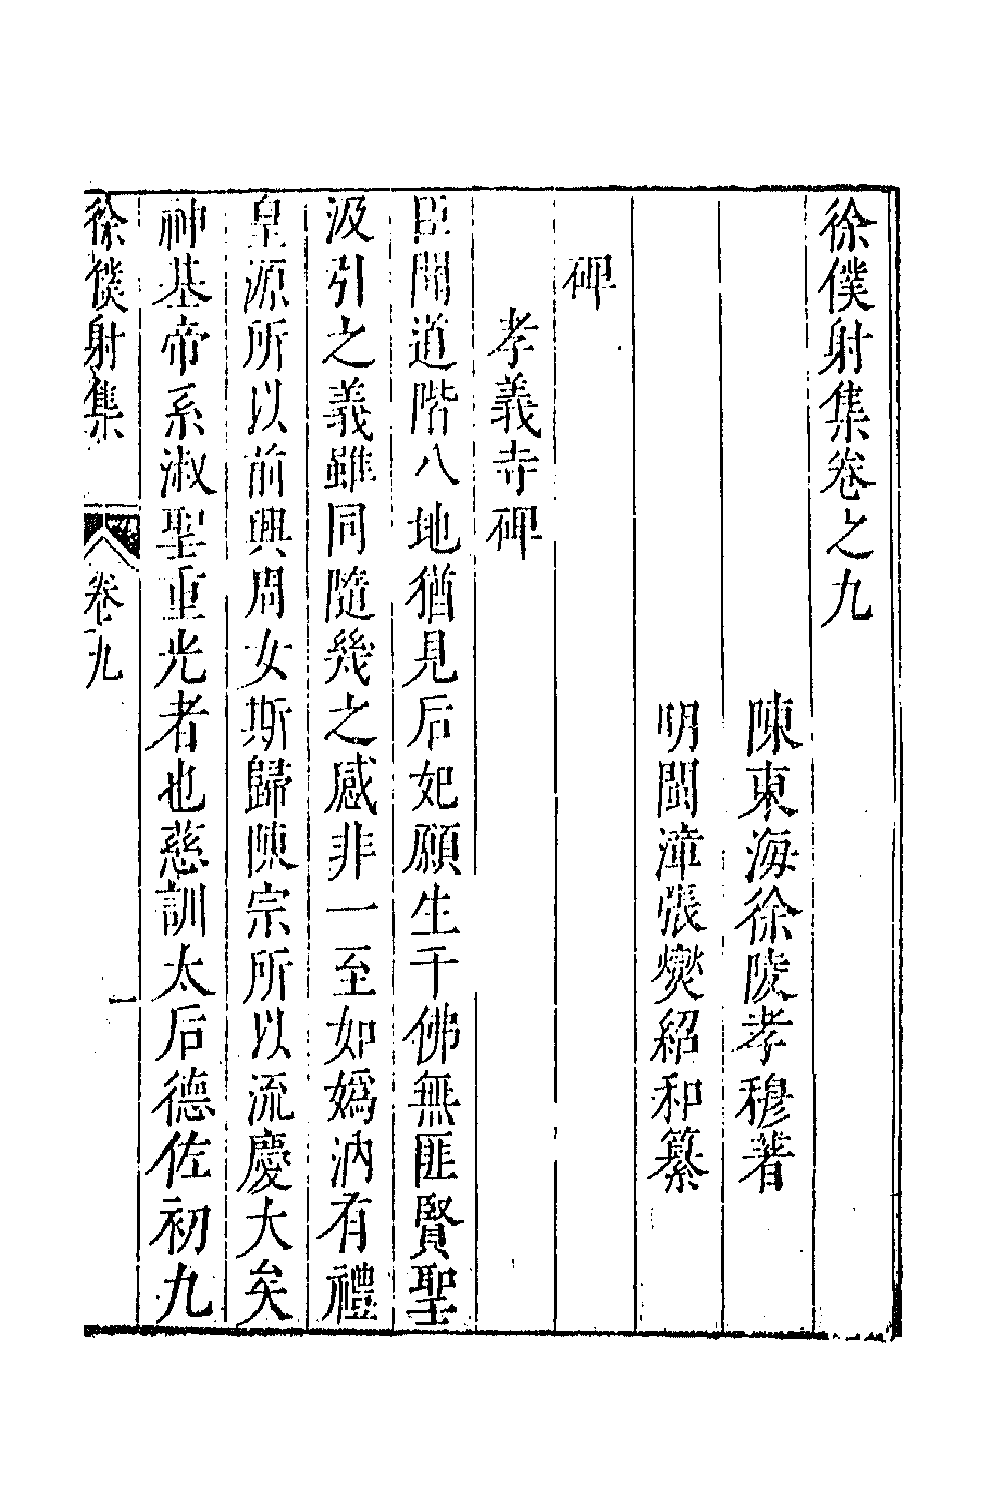 徐僕射集卷之九
陳東海徐陵孝穆著
明閩漳張燮紹和纂
碑
孝義寺碑
臣聞道階八地猶見后妃願生千佛無匪賢聖
汲引之義雖同隨幾之感非一至如嬀汭有禮
皇源所以前興周女斯歸陳宗所以流慶大矣
神基帝系淑聖重光者也慈訓太后德佐初九
徐僕射集
卷九
一